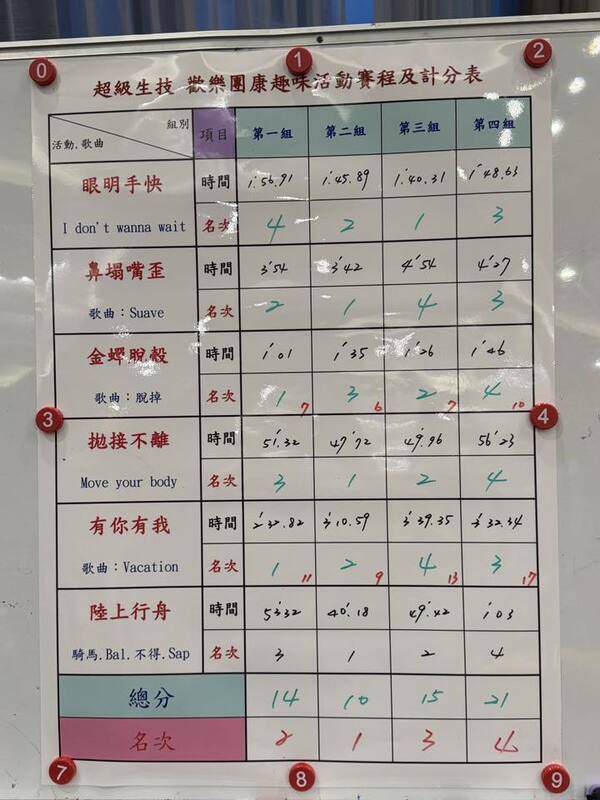 0 1 2
超級生技 歡樂團康趣味活動賽程及計分表
組別
活動.歌曲
項目 第一組 第二組 第三組 第四組
眼明手快 時間 1'56.91 1'45.89 1'40.31 1'48.63
I don't wanna wait 名次 4 2 1 3
鼻塌嘴歪 時間 3'54 3'42 4'54 4'27
歌曲：Suave 名次 2 1 4 3
金蟬脫殼 時間 1'01 1'35 1'26 1'46
歌曲：脫掉 名次 1 7 3 6 2 7 4 10
3 4
拋接不離 時間 51'32 47'72 49'96 56'23
Move your body 名次 3 1 2 4
有你有我 時間 2'32.82 3'10.59 3'39.35 3'32.34
歌曲：Vacation 名次 1 11 2 9 4 13 3 17
陸上行舟 時間 53'32 40'18 49'42 1'03
騎馬.Bal.不得.Sap 名次 3 1 2 4
總分 14 10 15 21
名次 2 1 3 4
7 8 9